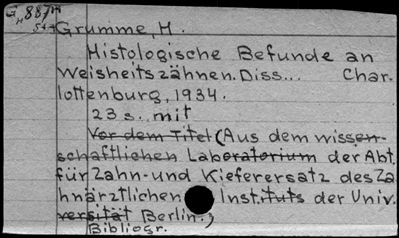 Grumme, H.
Histologische Befunde an
Weisheitszähnen. Diss... Char-
lottenburg, 1934.
23 s. mit
Vor dem Titel (Aus dem wissen-
schaftlichen Laboratorium der Abt.
für Zahn- und Kieferersatz des Za
hnärztlichen Instituts der Univ.
versität Berlin.)
Bibliogr.